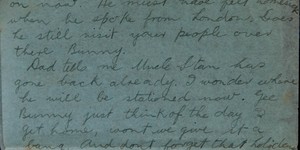 on now. He must have felt
when he spoke from London, does
he still visit your people over
there Bunny.
Dad tells me Uncle Stan has
gone back already. I wonder where
he will be stationed now. Gee
Bunny just think of the day I
get home, wont we give it a
bang. And dont forget that holiday